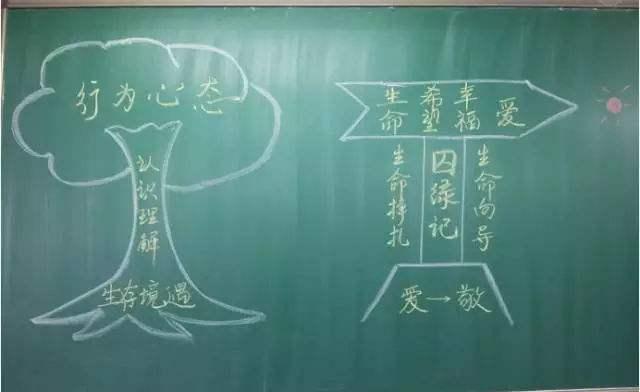 行为心态
认识理解
生存境遇
生命 希望 幸福 爱
生命挣扎
囚绿记
生命向导
爱→敬